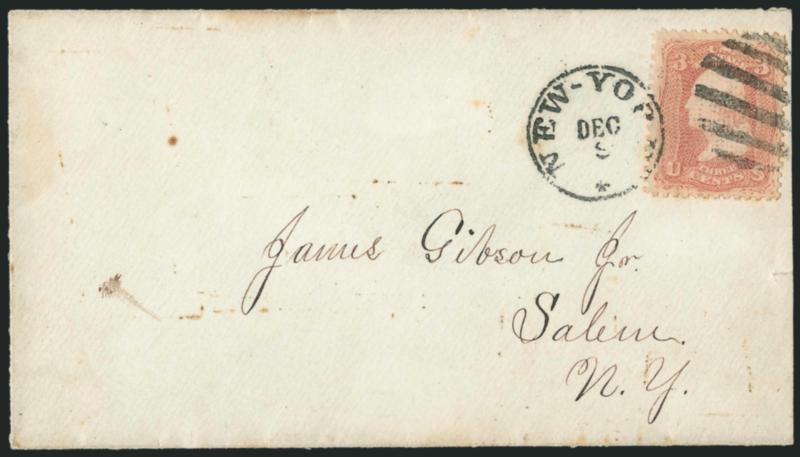 NEW-YOR
DEC
9
*
3 3
U THREE S
CENTS
James Gibson Jr.
Salem.
N. Y.